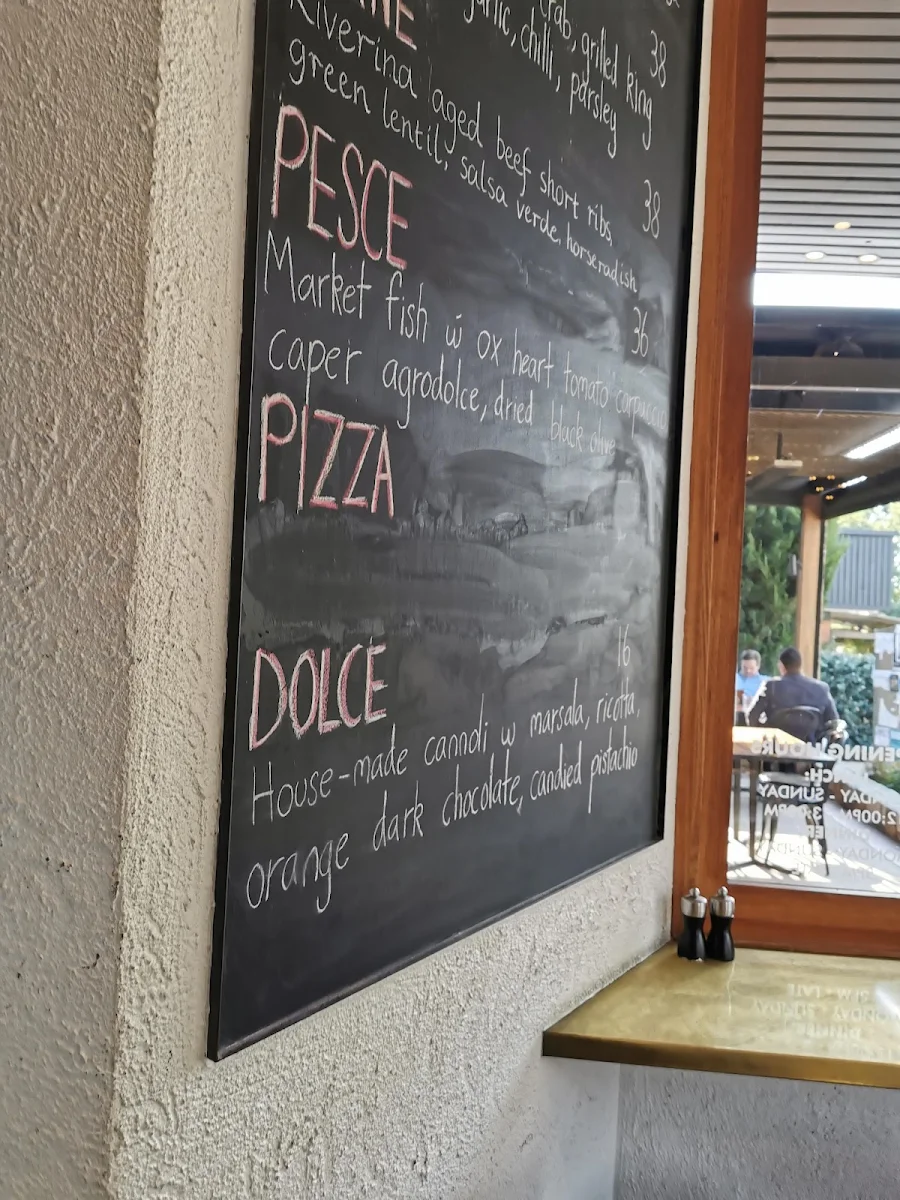 crab, grilled king
garlic, chilli, parsley
38
Riverina aged beef short ribs,
green lentil, salsa verde, horseradish
38
PESCE
Market fish w ox heart tomato carpaccio
caper agrodolce, dried black olive
36
PIZZA
DOLCE
House-made cannoli w marsala, ricotta,
orange dark chocolate, candied pistachio
16